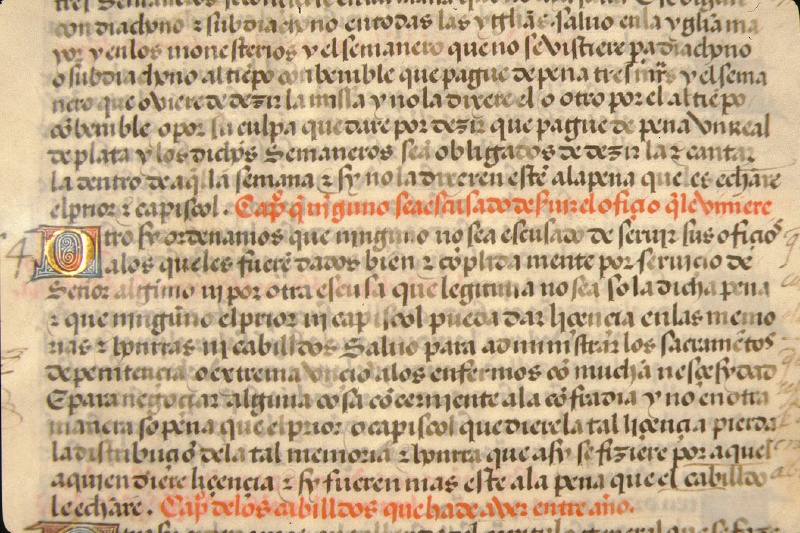 con diachono ⁊ subdiachono en todas las ygl̃ias. Saluo en la ygl̃ia ma
yor y en los monesterios y el semanero que no se vistiere pa diachono
o subdiachono al tiẽpo conbenible que pague de pena tres mr̃s y el sema
nero que oviere de dezir la missa y no la dixere el o otro por el al tiẽpo
cõbenible o por su culpa quedare por dezir que pague de pena vn Real
de plata y los dichos Semaneros seã obligados de dezir la ⁊ cantar
la dentro de aq̃lla semana ⁊ sy no la dixeren estẽ a la pena que les echarẽ
el prior ⁊ capiscol. Cap̃ q̃ ninguno sea escusado de seruir el ofiçio q̃ le viniere
Otro sy ordenamos que ninguno no sea escusado de seruir sus ofiçios
a los que les fuerẽ dados bien ⁊ cõplida mente por seruicio de
Señor alguno ni por otra escusa que legitima no sea so la dicha pena
⁊ que ninguno el prior ni capiscol pueda dar liçencia en las memo
rias ⁊ honrras ni cabilldos Saluo para administrar los sacramẽtos
de penitencia o extrema vncio a los enfermos cõ mucha nesçesydad
E para negoçiar alguna cosa cõcerniente a la cõfradia y no en otra
manera so pena que el prior o capiscol que diere la tal liçençia pierda
la distribuciõ de la tal memoria ⁊ honrra que asy se fiziere por aquel
a quien diere liçençia ⁊ sy fueren mas estẽ a la pena que el cabilldo
le echare. Cap̃ de los cabilldos que ha de aver entre año.